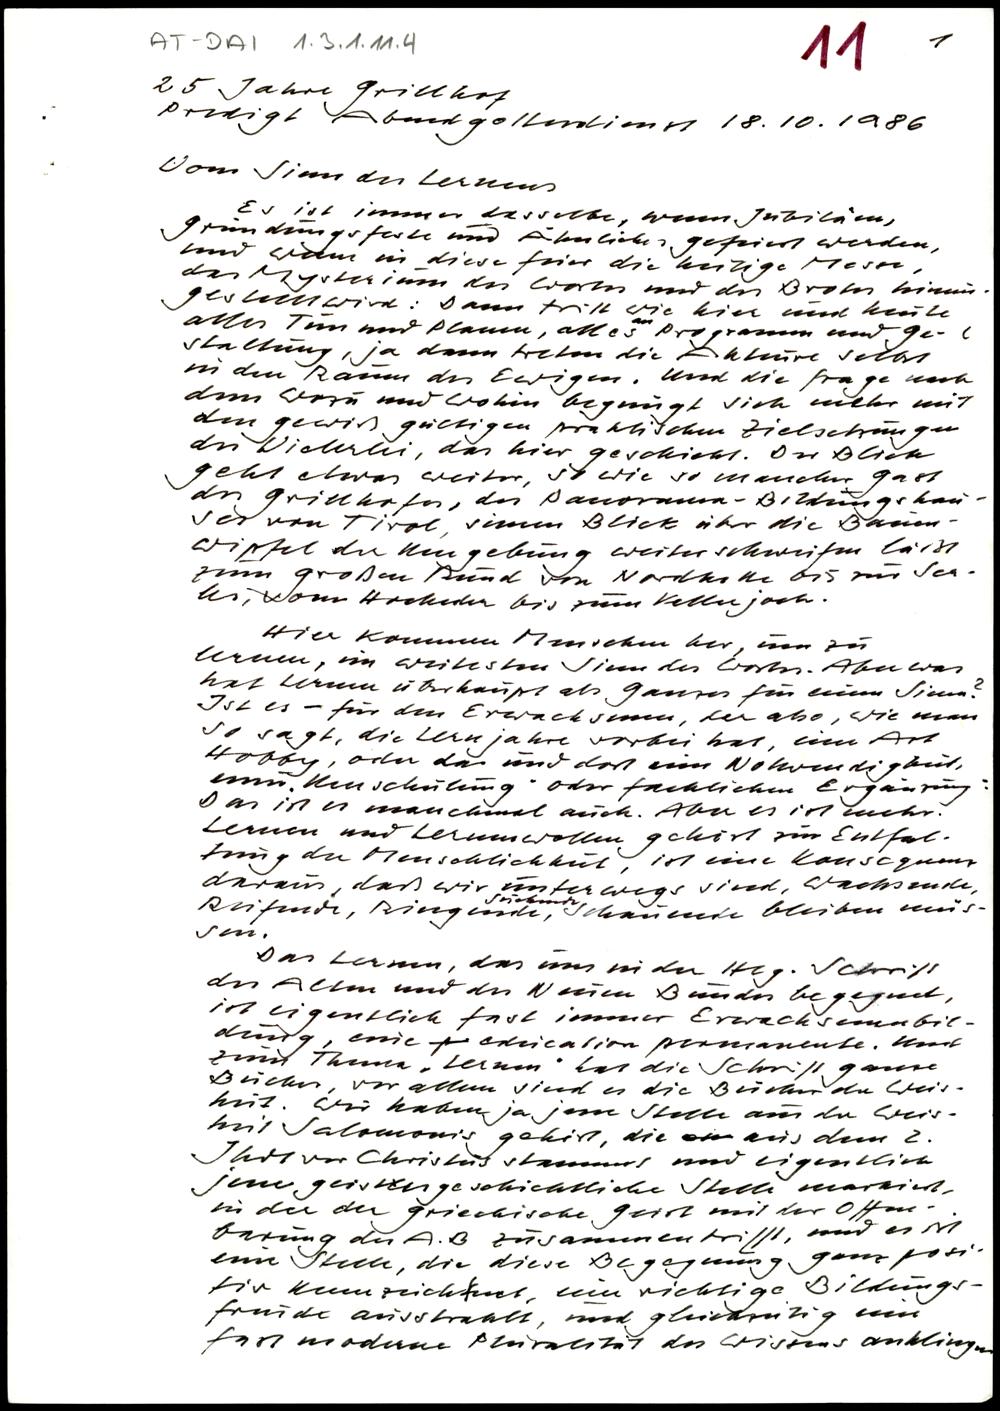 AT-DAI 1.3.1.11.4
11
1
25 Jahre Grillhof
Predigt Abendgottesdienst 18.10.1986
Vom Sinn des Lernens
Es ist immer dasselbe, wenn Jubiläen,
Gründungsfeste und Ähnliches gefeiert werden,
und wenn in diese Feier die heilige Messe,
das Mysterium des Wortes und des Brotes hinein-
gestellt wird: Dann tritt wie hier und heute
alles Tun und Planen, alles an Programm und Ge-
staltung, ja dann treten die Akteure selbst
in den Raum des Ewigen. Und die Frage nach
dem Wozu und Wohin begnügt sich mehr mit
den gewiß gültigen praktischen Zielsetzungen
des Vielerlei, das hier geschieht. Der Blick
geht etwas weiter, so wie so mancher Gast
des Grillhofes, des Panorama-Bildungshau-
ses von Tirol, seinen Blick über die Baum-
wipfel der Umgebung weiterschweifen läßt
zum großen Rund von Nordkette bis zur Ser-
les, vom Hocheder bis zum Kellerjoch.
Hier kommen Menschen her, um zu
lernen, im weitesten Sinn des Wortes. Aber was
hat Lernen überhaupt als Ganzes für einen Sinn?
Ist es – für den Erwachsenen, der also, wie man
so sagt, die Lernjahre vorbei hat, eine Art
Hobby, oder da und dort eine Notwendigkeit,
einer „Umschulung" oder fachlichen Ergänzung?
Das ist es manchmal auch. Aber es ist mehr.
Lernen und Lernenwollen gehört zur Entfal-
tung der Menschlichkeit, ist eine Konsequenz
daraus, daß wir unterwegs sind, Wachsende,
Reifende, Ringende, Suchende, Schauende bleiben müs-
sen.
Das Lernen, das uns in der Hlg. Schrift
des Alten und des Neuen Bundes begegnet,
ist eigentlich fast immer Erwachsenenbil-
dung, eine education permanente. Und
zum Thema „Lernen" hat die Schrift ganze
Bücher, vor allem sind es die Bücher der Weis-
heit. Wir haben ja jene Stelle aus der Weis-
heit Salomonis gehört, die aus dem 2.
Jhdt vor Christus stammt und eigentlich
jene geistesgeschichtliche Stelle markiert,
in der der griechische Geist mit der Offen-
barung des A.B zusammentrifft, und es ist
eine Stelle, die diese Begegnung ganz posi-
tiv kennzeichnet, eine richtige Bildungs-
freude ausstrahlt, und gleichzeitig eine
fast moderne Pluralität des Wissens anklingen